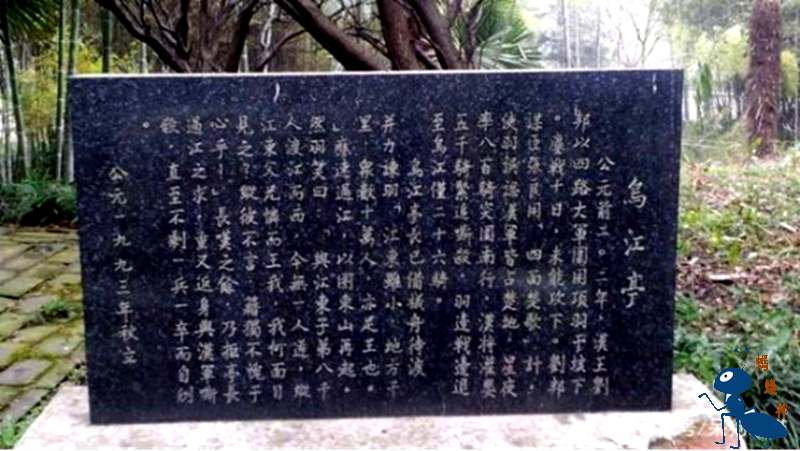 烏江亭
公元前二〇二年，漢王劉
邦以四路大軍圍困項羽于垓下
。鏖戰十日，未能攻下。劉邦
謀臣張良用“四面楚歌”計，
使羽誤認漢軍皆占楚地，星夜
率八百騎突圍南行，漢將灌嬰
五千騎緊追嘶殺，羽邊戰邊退
至烏江僅二十六騎。
烏江亭長已備艤舟待渡
并力諫羽“江東雖小，地方千
里，衆數十萬人，亦足王也。
”願速過江，以圖東山再起。
然羽笑曰：“與江東子弟八千
人渡江而西，今無一人還，縱
江東父兄憐而王我，我何面目
見之？縱彼不言，籍獨不愧于
心乎！”長嘆之餘，乃拒亭長
過江之求，重又返身與漢軍嘶
殺，直至不剩一兵一卒而自刎
。
公元一九九三年秋立